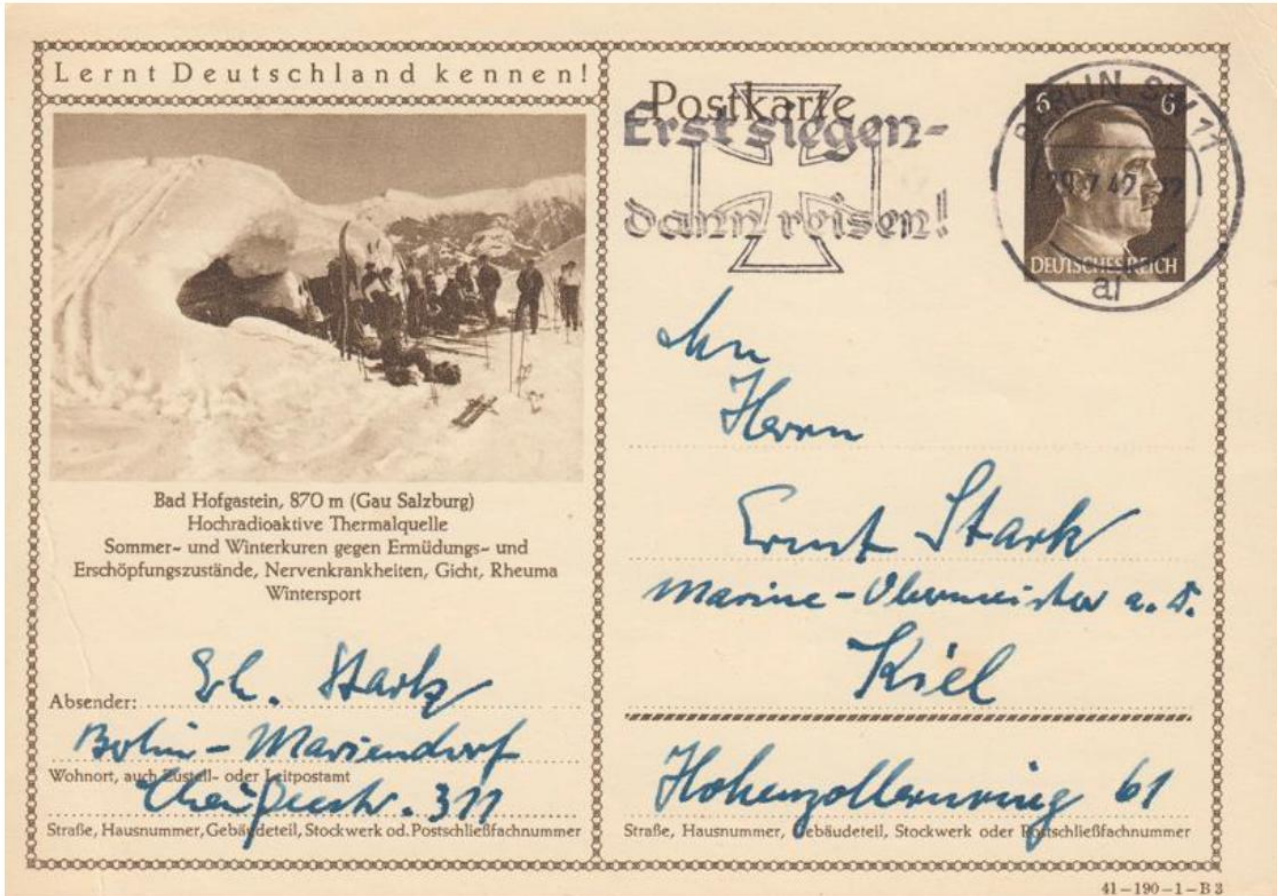 Lernt Deutschland kennen!
Bad Hofgastein, 870 m (Gau Salzburg)
Hochradioaktive Thermalquelle
Sommer- und Winterkuren gegen Ermüdungs- und
Erschöpfungszustände, Nervenkrankheiten, Gicht, Rheuma
Wintersport
Stark
Absender:
Berlin-Mariendorf
Wohnort, auch Zustell- oder Leitpostamt
Chausseestr. 311
Straße, Hausnummer, Gebäudeteil, Stockwerk od. Postschließfachnummer
Postkarte
Erst siegen-
dann reisen!
BERLIN SW 11
6 6
29.7.42
DEUTSCHES REICH
al
An
Herrn
Ernst Stark
Marine-Obermeister a. D.
Kiel
Hohenzollernring 61
Straße, Hausnummer, Gebäudeteil, Stockwerk oder Postschließfachnummer
41-190-1-B 3